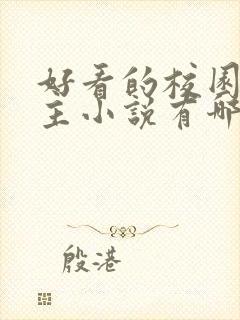 好看的校园
主小说有哪
殷港